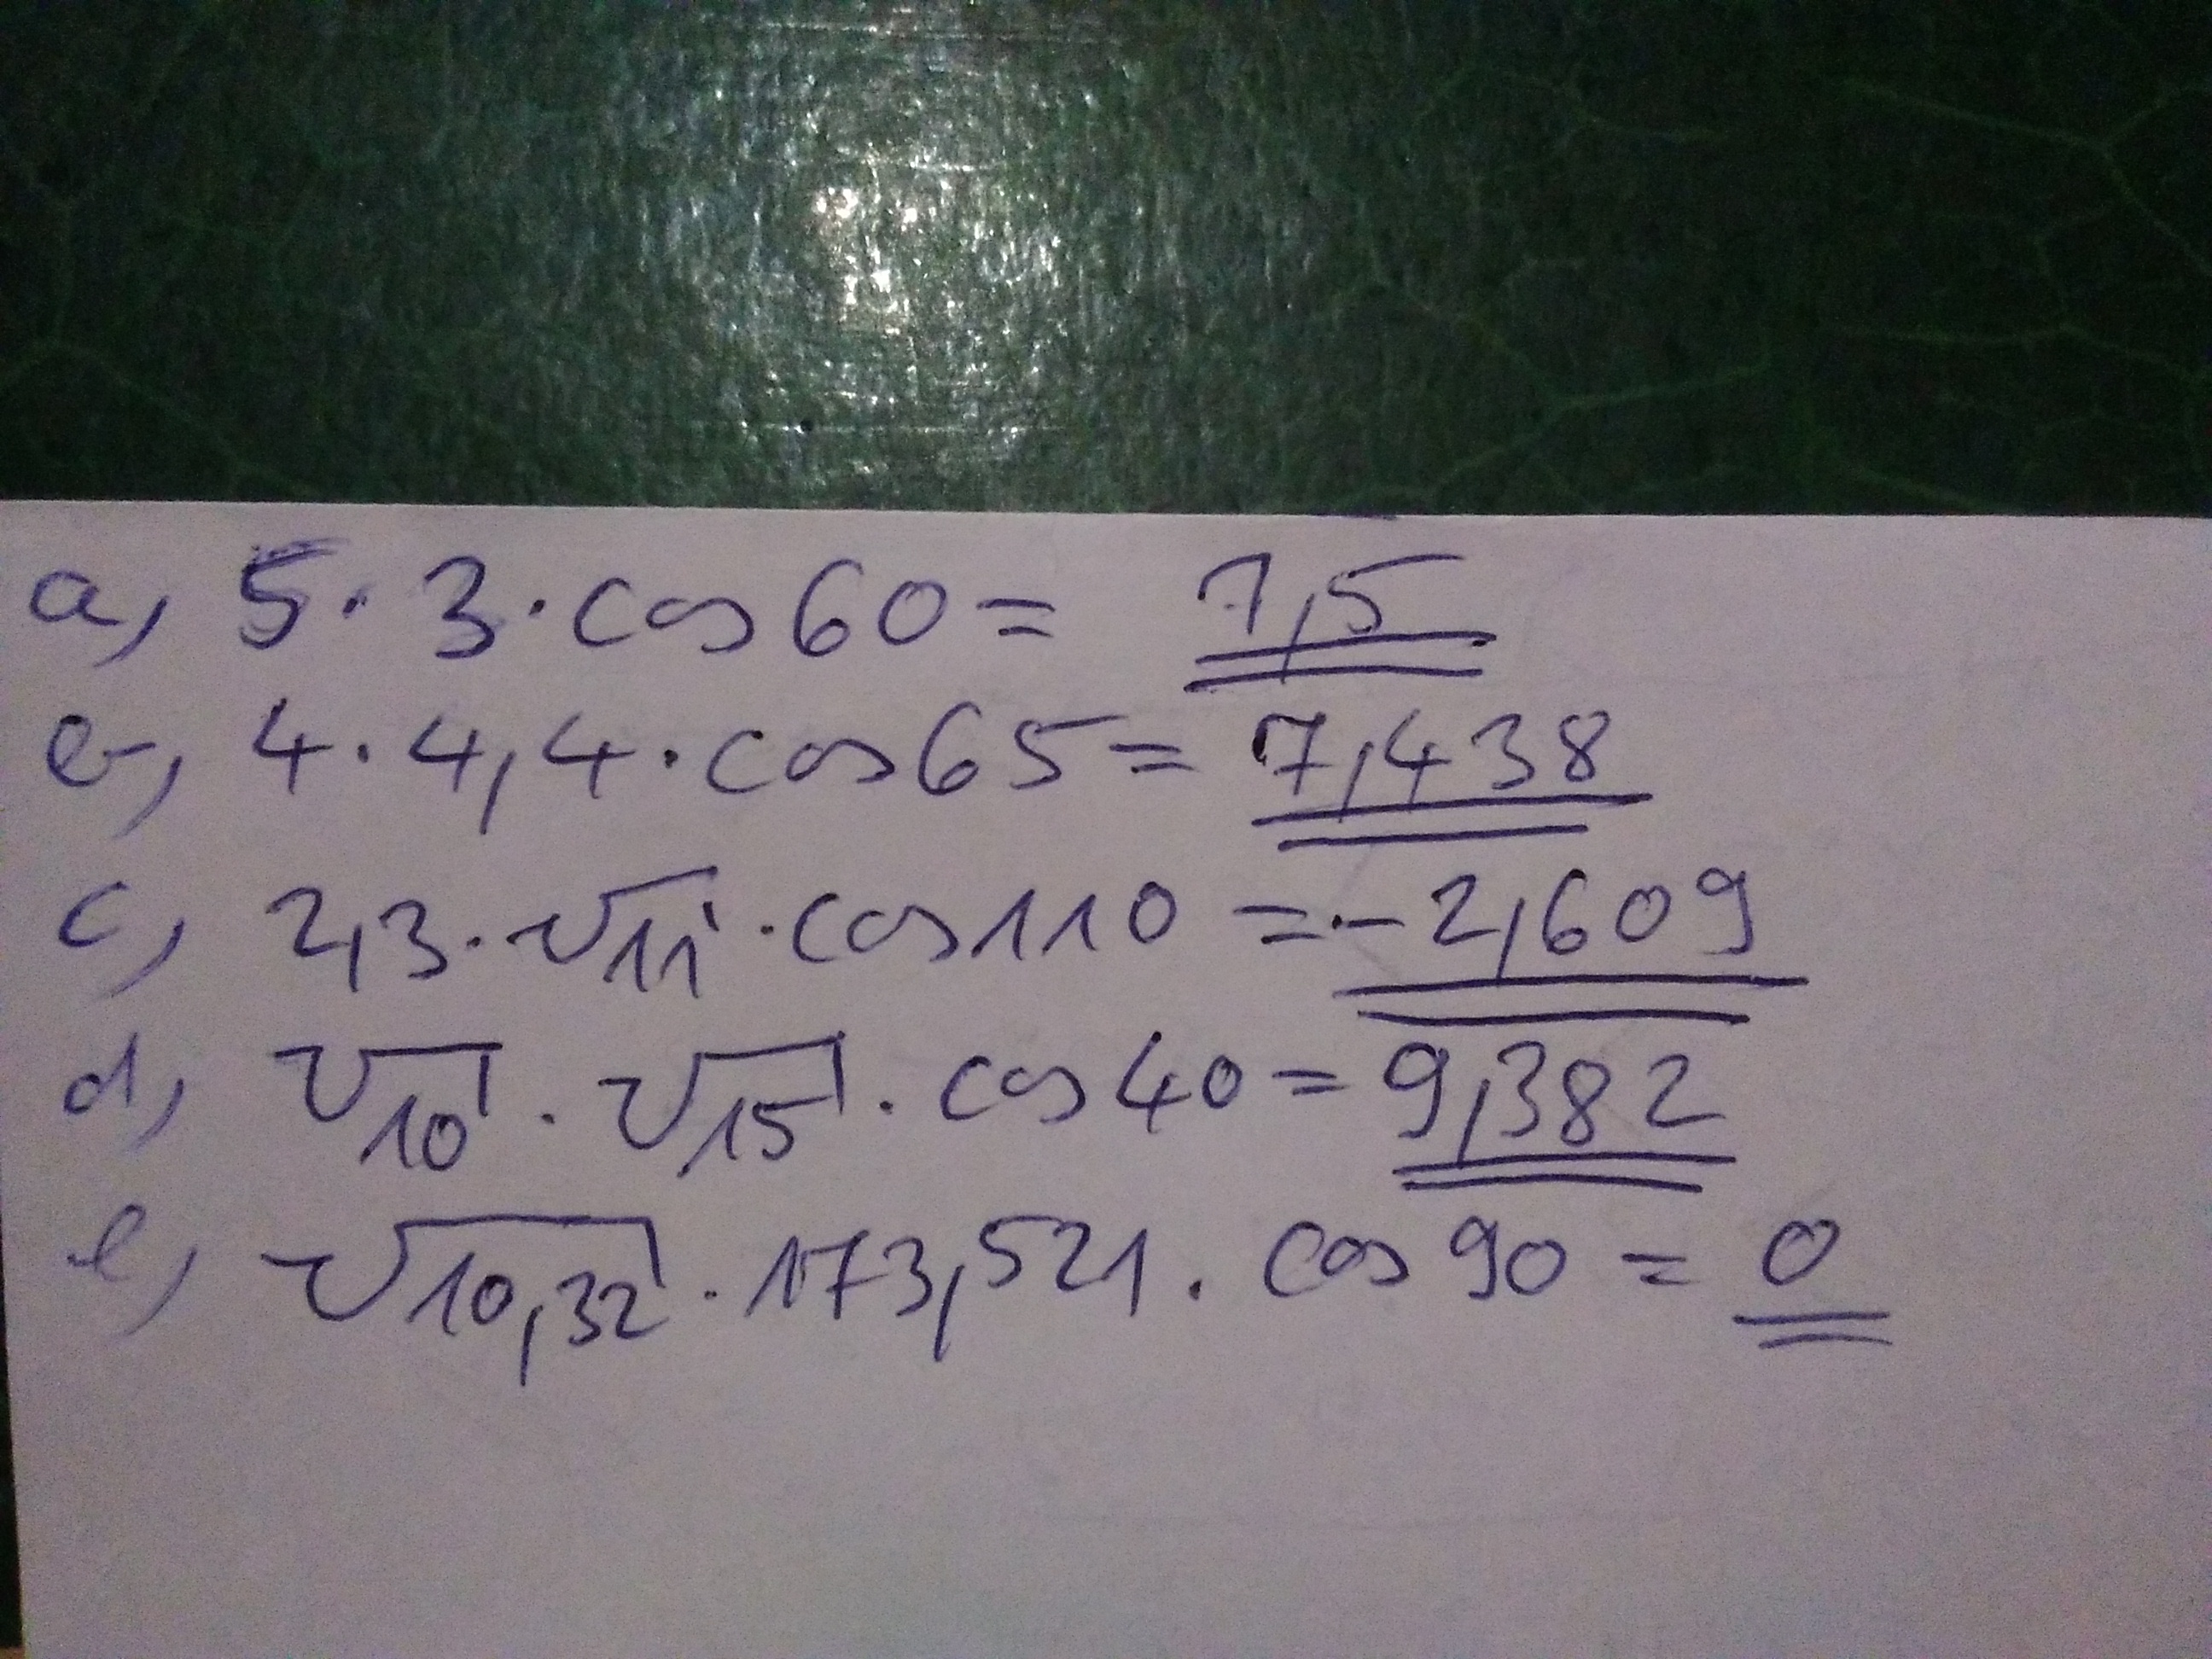 a, 5 · 3 · cos 60 = 7,5
b, 4 · 4,4 · cos 65 = 7,438
c, 2,3 · √11 · cos 110 = -2,609
d, √10 · √15 · cos 40 = 9,382
e, √10,32 · 173,521 · cos 90 = 0